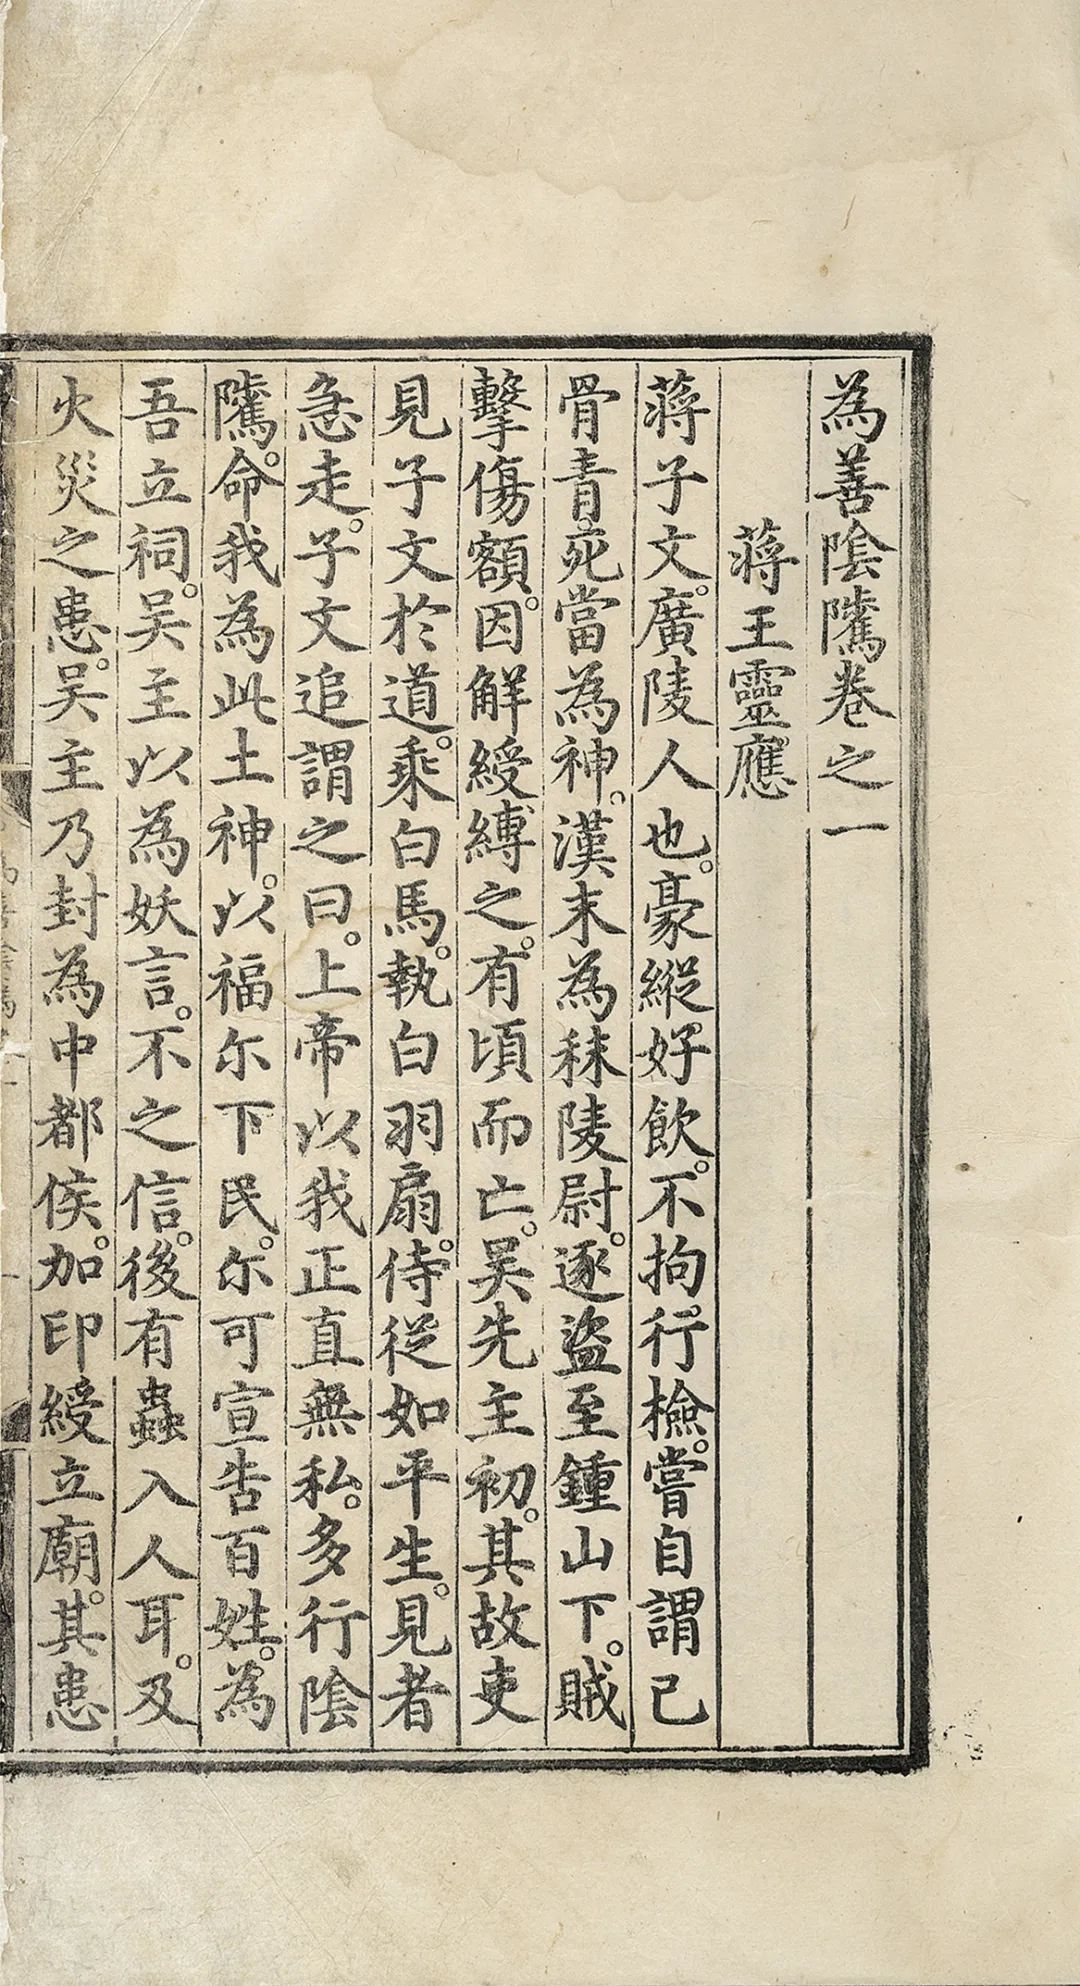 為善陰隲卷之一
蔣王靈應
蔣子文。廣陵人也。豪縱好飲。不拘行檢。嘗自謂己
骨青死當為神。漢末為秣陵尉。逐盜至鍾山下。賊
擊傷額。因解綬縛之。有頃而亡。吴先主初。其故吏
見子文於道。乘白馬。執白羽扇。侍從如平生。見者
急走。子文追謂之曰。上帝以我正直無私。多行陰
隲。命我為此土神。以福尓下民。尓可宣告百姓。為
吾立祠。吴主以為妖言。不之信。後有蟲入人耳。及
火災之患。吴主乃封為中都侯。加印綬立廟。其患